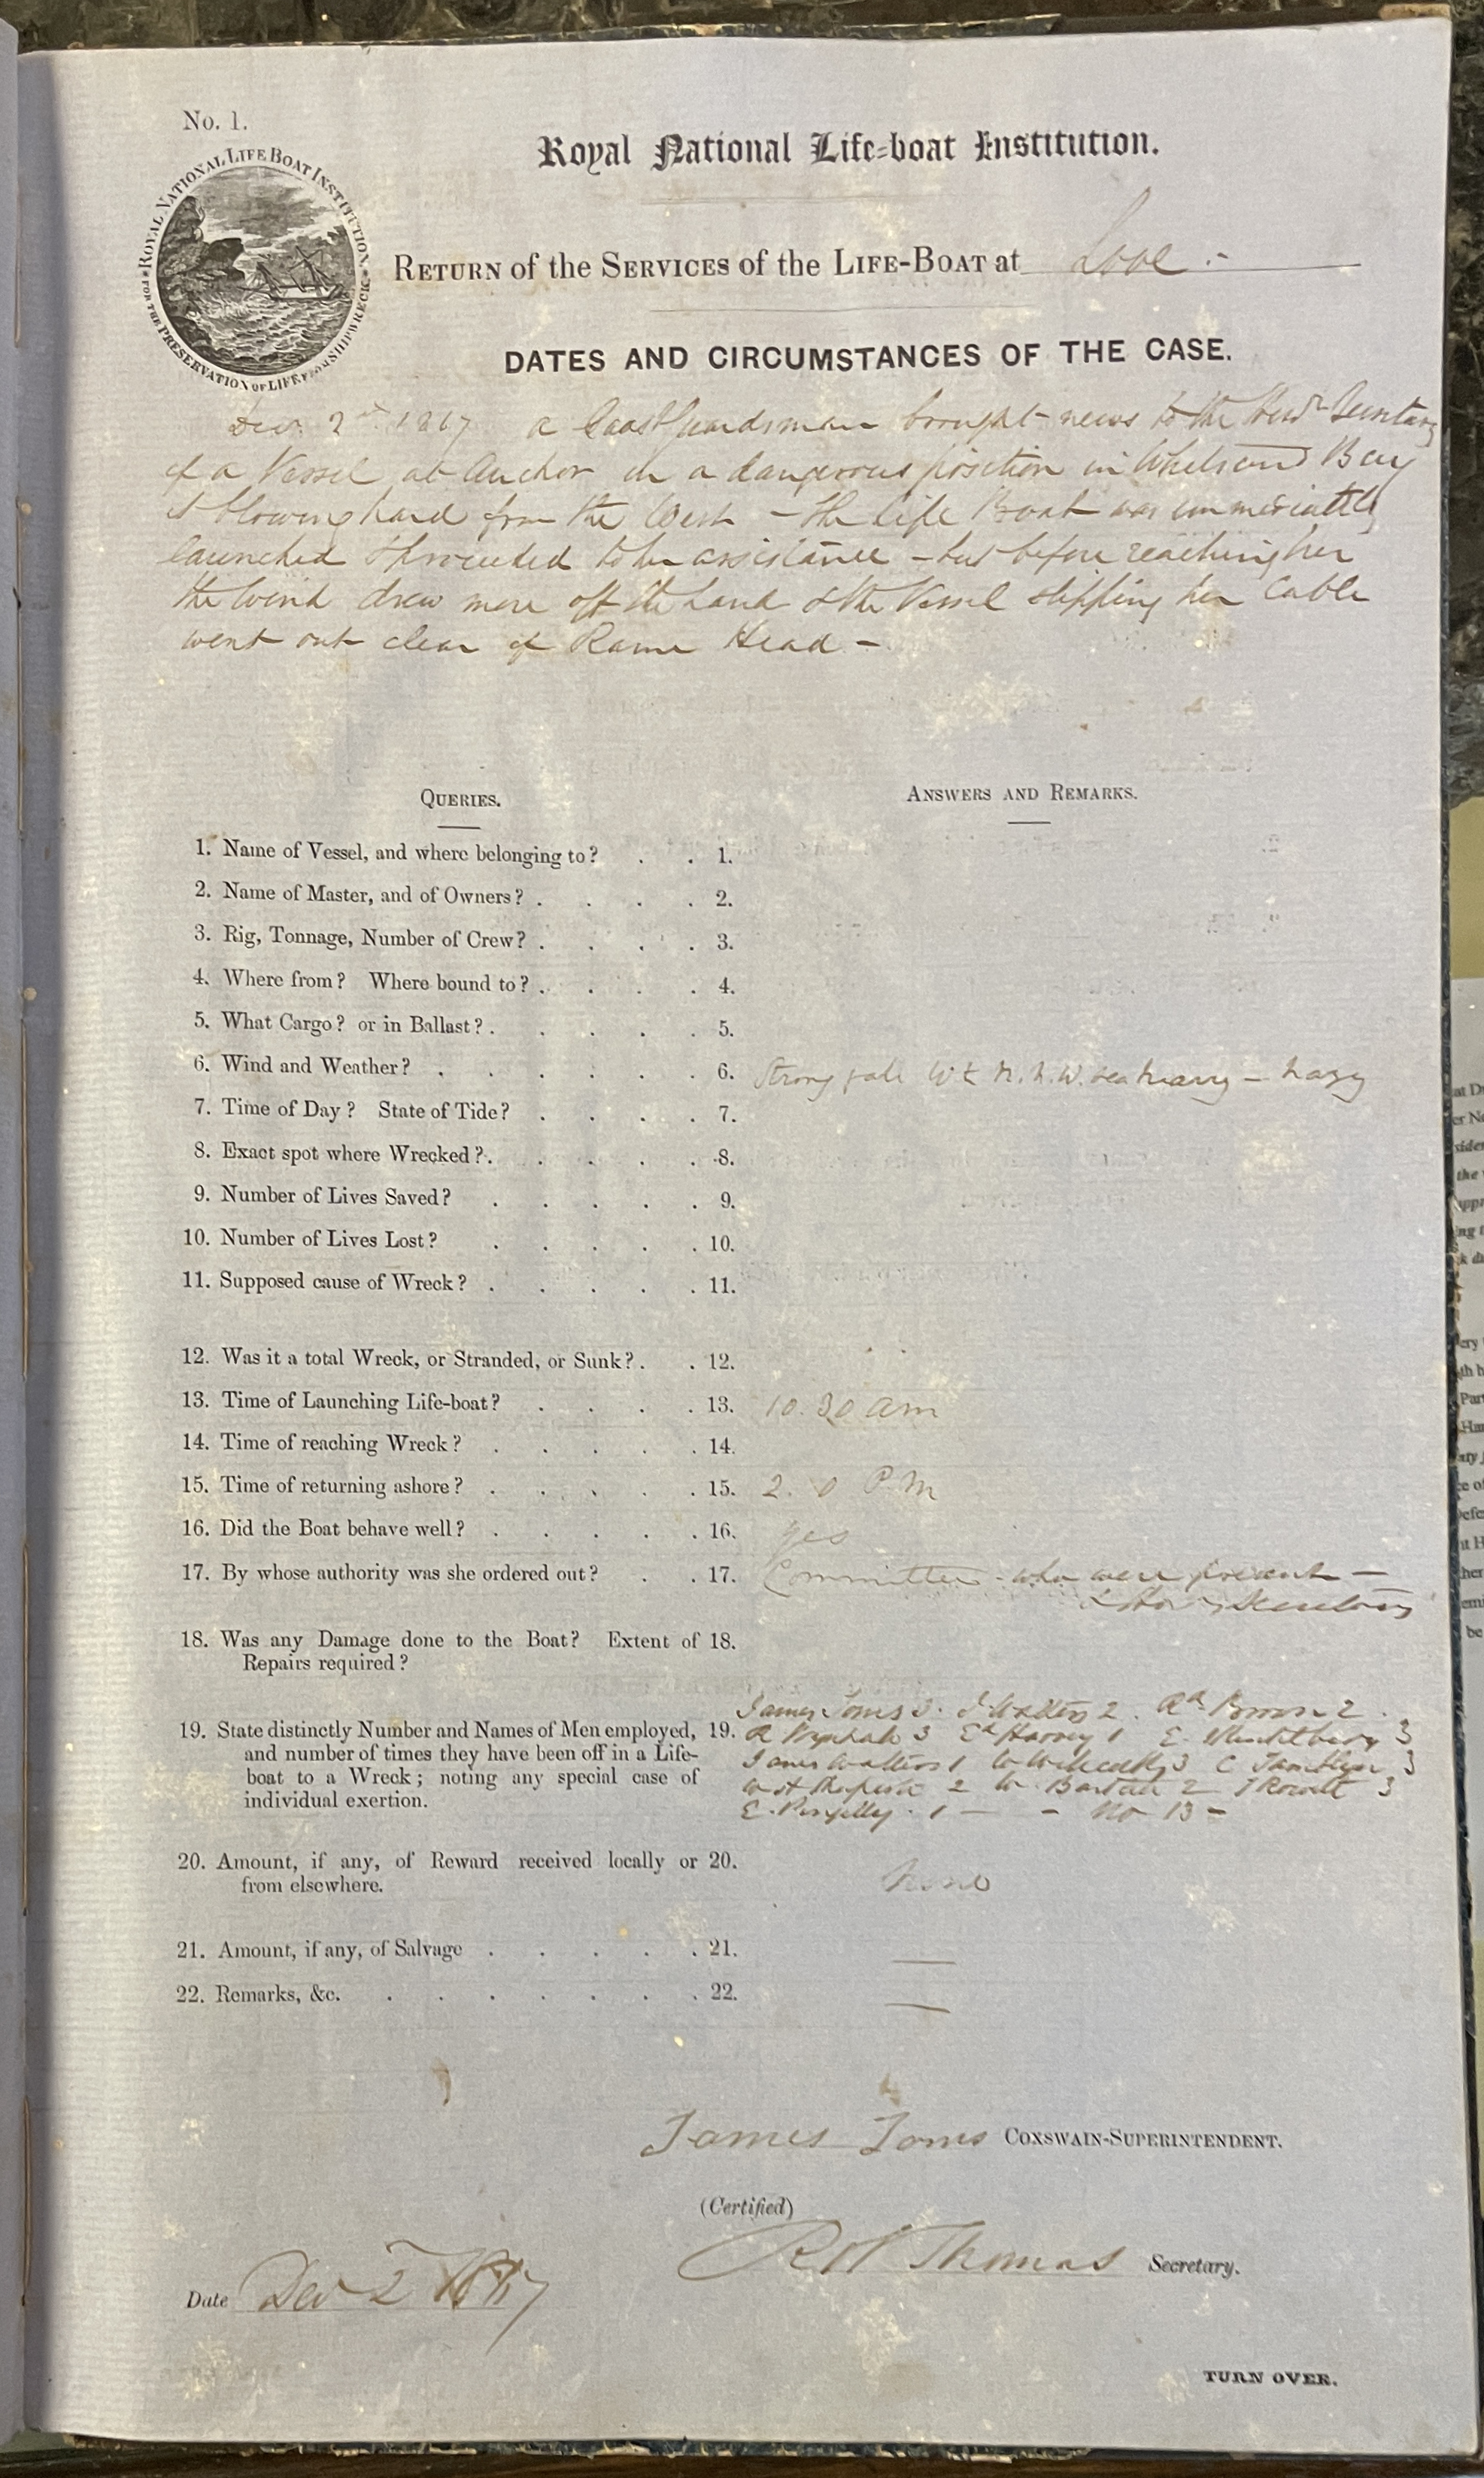 No. 1.
ROYAL NATIONAL LIFE BOAT INSTITUTION
FOR THE PRESERVATION OF LIFE FROM SHIPWRECK
Royal National Life-boat Institution.
RETURN of the SERVICES of the LIFE-BOAT at Looe -
DATES AND CIRCUMSTANCES OF THE CASE.
Decr 2nd 1867 a Coast guardsman brought news to the Secretary
of a Vessel at Anchor in a dangerous position in Whitsand Bay
blowing hard from the West - the Life Boat was immediately
launched & proceeded to her assistance - but before reaching her
the Wind drew more off the Land & the Vessel slipping her Cable
went out clear of Rame Head -
QUERIES.
ANSWERS AND REMARKS.
1. Name of Vessel, and where belonging to? 1.
2. Name of Master, and of Owners? 2.
3. Rig, Tonnage, Number of Crew? 3.
4. Where from? Where bound to? 4.
5. What Cargo? or in Ballast? 5.
6. Wind and Weather? 6. Strong gale W & N.N.W. sea heavy - hazy
7. Time of Day? State of Tide? 7.
8. Exact spot where Wrecked? 8.
9. Number of Lives Saved? 9.
10. Number of Lives Lost? 10.
11. Supposed cause of Wreck? 11.
12. Was it a total Wreck, or Stranded, or Sunk? 12.
13. Time of Launching Life-boat? 13. 10.30 am
14. Time of reaching Wreck? 14.
15. Time of returning ashore? 15. 2. 0 PM
16. Did the Boat behave well? 16. Yes
17. By whose authority was she ordered out? 17. Committee - who were present -
& Hon Secretary
18. Was any Damage done to the Boat? Extent of 18.
Repairs required?
James Toms 3. J Walters 2. Rd Brown 2.
19. State distinctly Number and Names of Men employed, 19. R 3 Ed Harvey 1 E. 3
and number of times they have been off in a Life-
James Walters 1 W 3 C 3
boat to a Wreck; noting any special case of
2 W. 2 3
individual exertion.
E. Pengelly. 1 - - No 13 -
20. Amount, if any, of Reward received locally or 20.
from elsewhere. None
21. Amount, if any, of Salvage 21. —
22. Remarks, &c. 22. —
James Toms COXSWAIN-SUPERINTENDENT.
(Certified)
RH Thomas Secretary.
Date Decr 2 1867
TURN OVER.